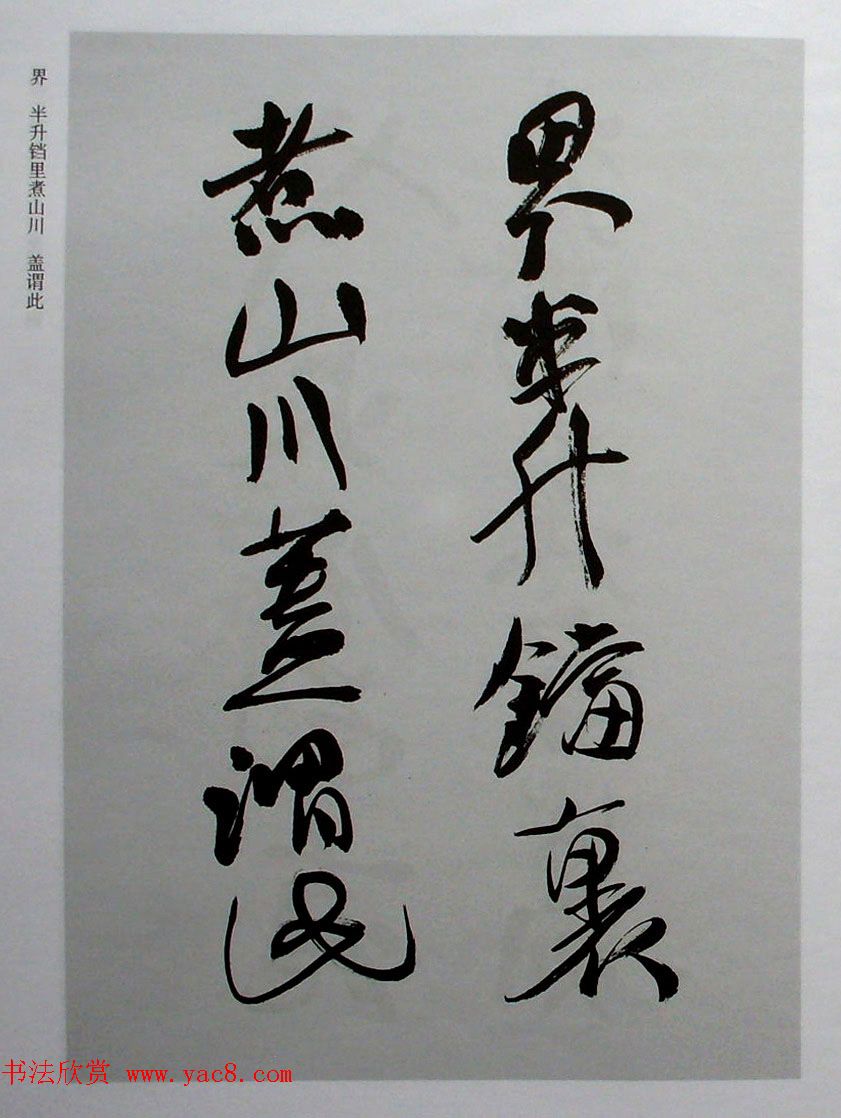 界半升鐺裏
煮山川蓋謂此
界 半升铛里煮山川 盖谓此
书法欣赏 www.yac8.com